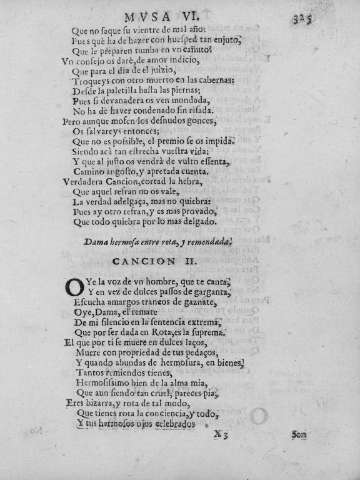 MVSA VI. 325
Que no saque su vientre de mal año:
Pues què ha de hazer con huesped tan enjuto,
Que le preparen tumba en vn cañuto?
Vn consejo os darè, de amor indicio,
Que para el dia de el juizio,
Troqueys con otro muerto en las cabernas;
Desde la paletilla hasta las piernas;
Pues si devanadera os ven mondada,
No ha de haver condenado sin risada.
Pero aunque mofen los desnudos gonces,
Os salvareys entonces;
Que no es possible, el premio se os impida.
Siendo acà tan estrecha vuestra vida;
Y que al justo os vendrà de vulto essenta,
Camino angosto, y apretada cuenta.
Verdadera Cancion, cortad la hebra,
Que aquel refran no os vale,
La verdad adelgaça, mas no quiebra:
Pues ay otro refran, y es mas provado,
Que todo quiebra por lo mas delgado.
Dama hermosa entre rota, y remendada.
CANCION II.
OYe la voz de vn hombre, que te canta,
Y en vez de dulces passos de garganta,
Escucha amargos trancos de gaznate,
Oye, Dama, el remate
De mi silencio en la sentencia extrema,
Que por ser dada en Rota, es la suprema.
El que por ti se muere en dulces laços,
Muere con propriedad de tus pedaços,
Y quando abundas de hermosura, en bienes,
Tantos remiendos tienes,
Hermosissimo bien de la alma mia,
Que aun siendo tan cruel, pareces pia,
Eres bizarra, y rota de tal modo,
Que tienes rota la conciencia, y todo,
Y tus hermosos ojos celebrados
X3 Son